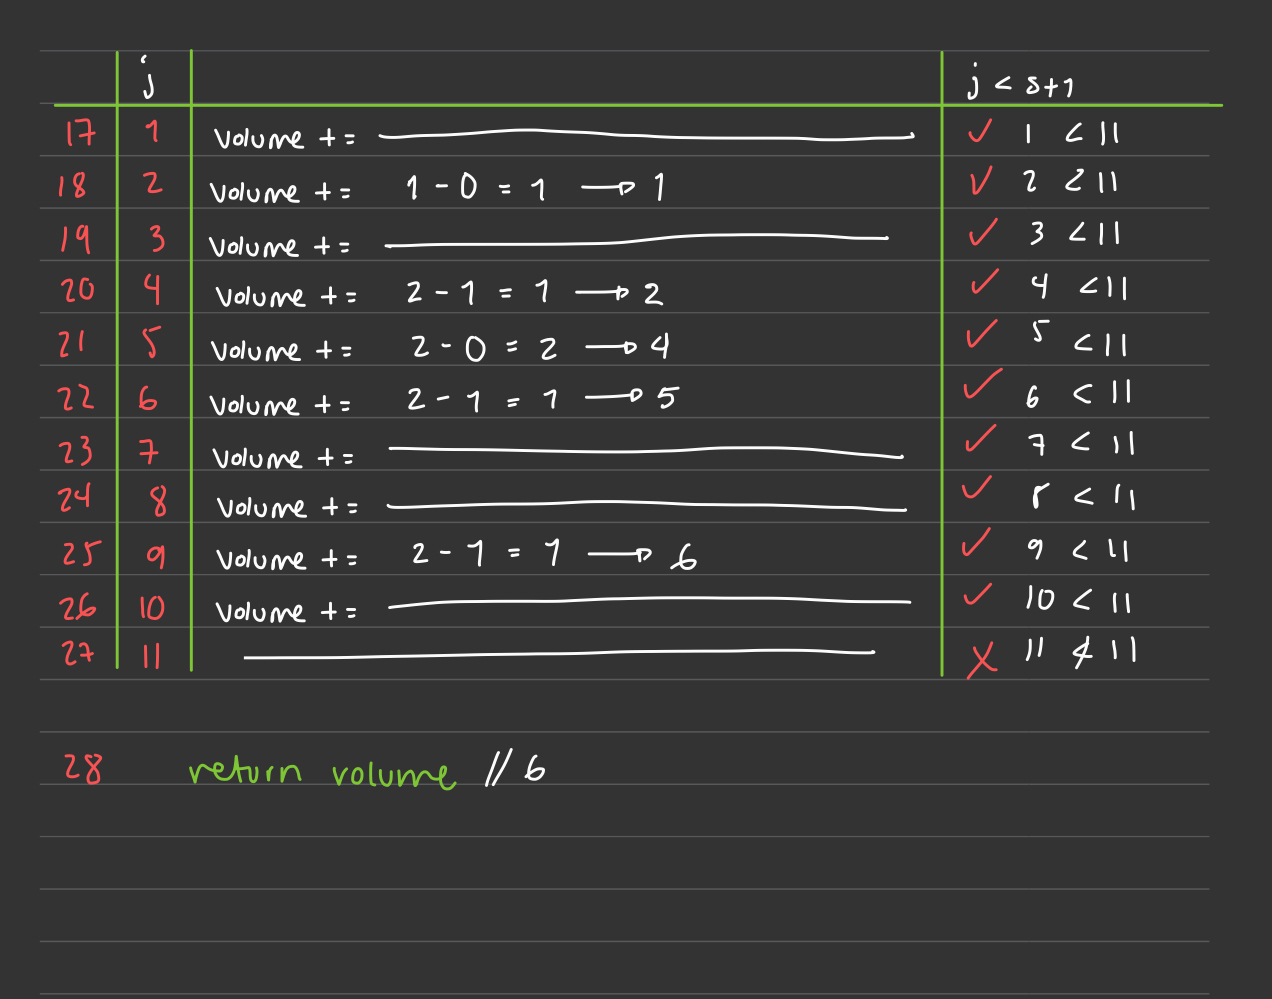 j j < s+1
17 1 Volume += ✓ 1 < 11
18 2 Volume += 1 - 0 = 1 → 1 ✓ 2 < 11
19 3 Volume += ✓ 3 < 11
20 4 Volume += 2 - 1 = 1 → 2 ✓ 4 < 11
21 5 Volume += 2 - 0 = 2 → 4 ✓ 5 < 11
22 6 Volume += 2 - 1 = 1 → 5 ✓ 6 < 11
23 7 Volume += ✓ 7 < 11
24 8 Volume += ✓ 8 < 11
25 9 Volume += 2 - 1 = 1 → 6 ✓ 9 < 11
26 10 Volume += ✓ 10 < 11
27 11 ✗ 11 ≮ 11
28 return volume // 6